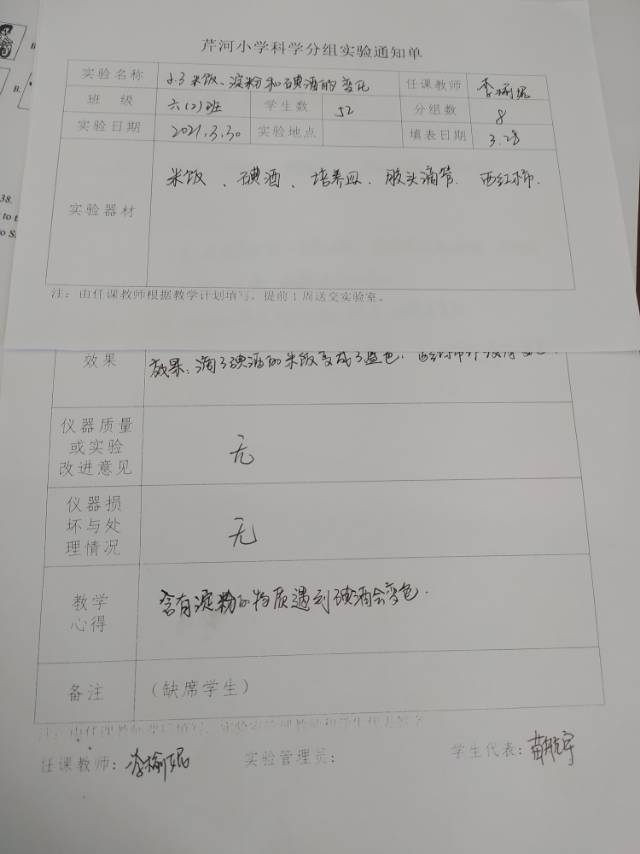 芹河小学科学分组实验通知单
实验名称 2.3米饭、淀粉和碘酒的变化 任课教师 李榆妮
班 级 六(2)班 学生数 52 分组数 8
实验日期 2021.3.30 实验地点 填表日期 3.28
实验器材 米饭、碘酒、培养皿、胶头滴管、西红柿.
注：由任课教师根据教学计划填写，提前1周送交实验室。
效果 效果：滴了碘酒的米饭变成了蓝色.西红柿
仪器质量
或实验
改进意见 无
仪器损
坏与处
理情况 无
教学
心得 含有淀粉的物质遇到碘酒会变色.
备注 (缺席学生)
任课教师：李榆妮 实验管理员： 学生代表：
38.
B.